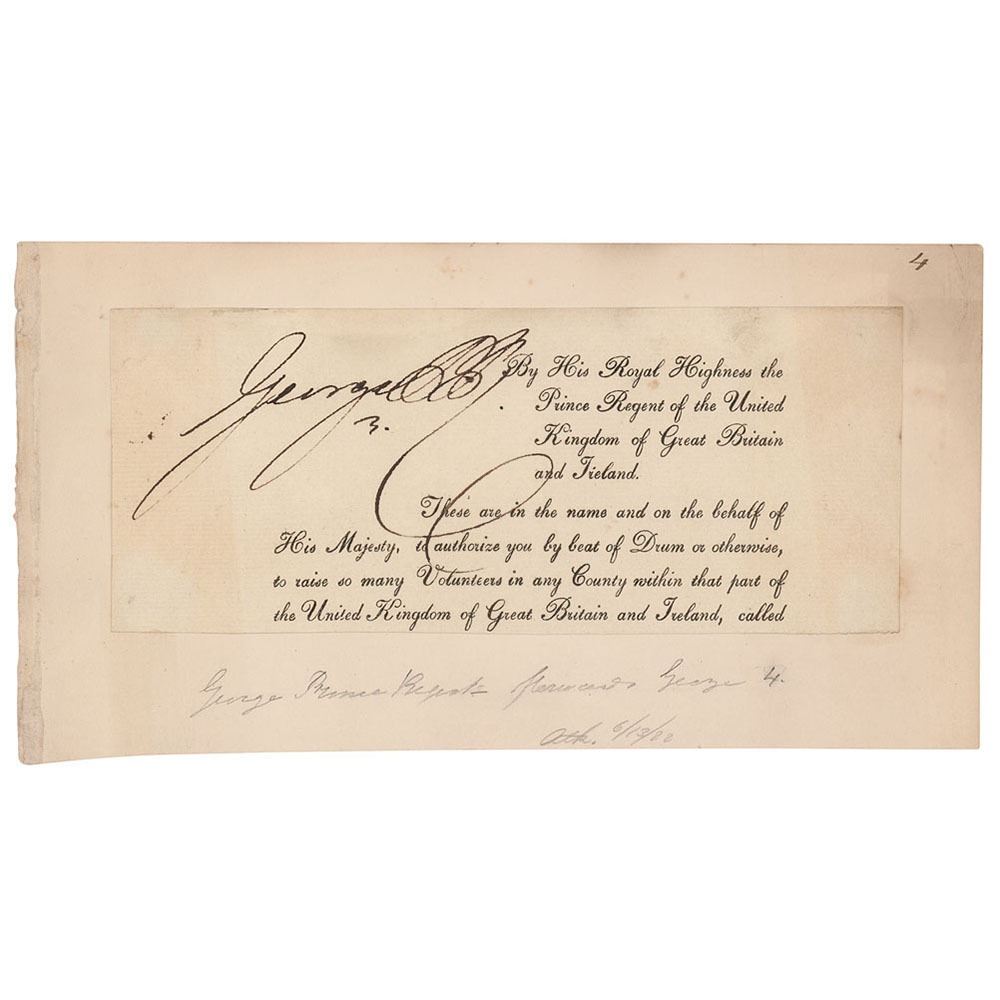 4
George PR
By His Royal Highness the
Prince Regent of the United
3.
Kingdom of Great Britain
and Ireland.
These are in the name and on the behalf of
His Majesty, to authorize you by beat of Drum or otherwise,
to raise so many Volunteers in any County within that part of
the United Kingdom of Great Britain and Ireland, called
George Prince Regent afterwards George 4.
6/13/